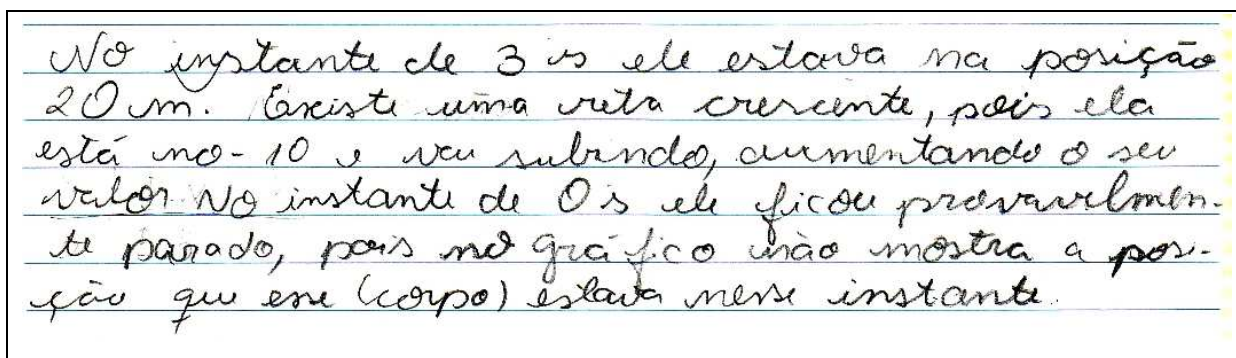 No instante de 3 s ele estava na posição
20 m. Existe uma reta crescente, pois ela
está no -10 e vai subindo, aumentando o seu
valor No instante de 0 s ele ficou provavelmen-
te parado, pois no gráfico não mostra a posi-
ção que esse (corpo) estava nesse instante.